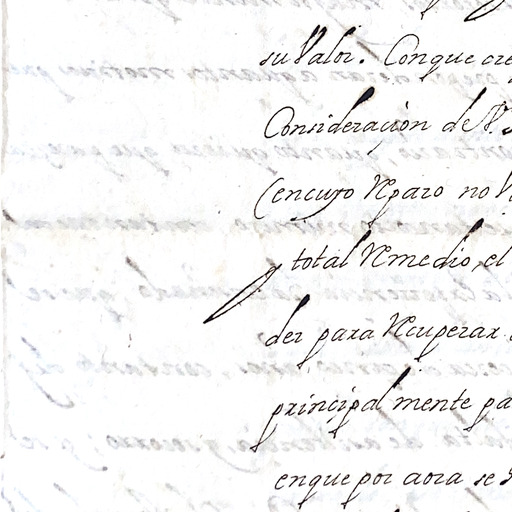 su Valor. Conque cre
Consideración de V. S
(en cuyo Reparo no h
total Remedio, el
der para Recuperar
principalmente pa
enque por aora se